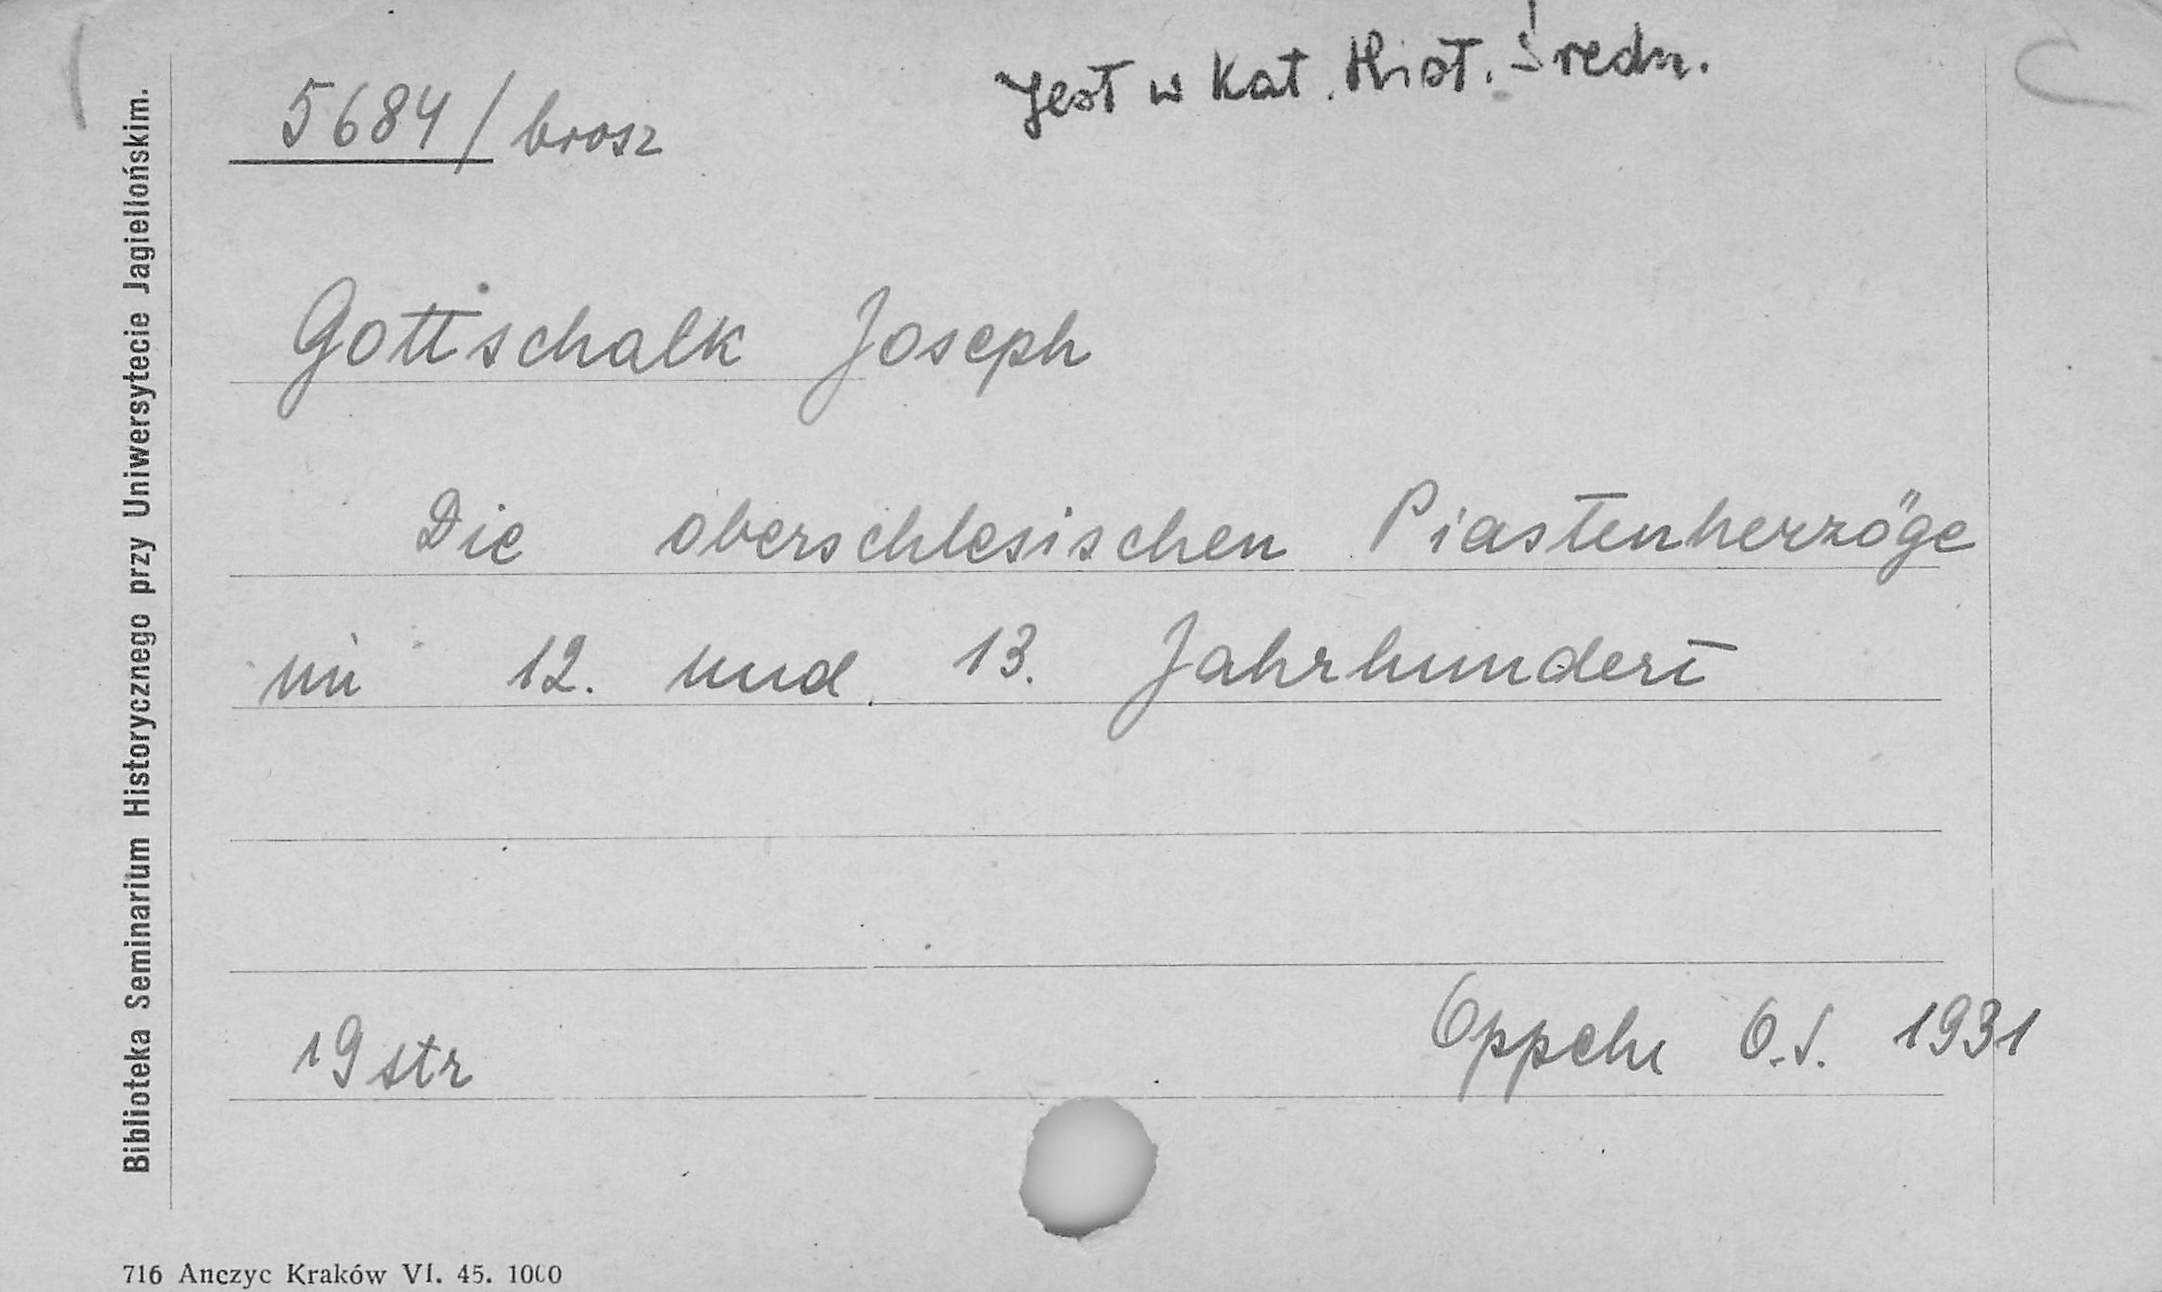 5684/brosz
Jest w Kat. Hist. Średn.
Gottschalk Joseph
Die oberschlesischen Piastenherzöge
im 12. und 13. Jahrhundert
19 str
Oppeln O.S. 1931
Biblioteka Seminarium Historycznego przy Uniwersytecie Jagiellońskim.
716 Anczyc Kraków VI. 45. 1000